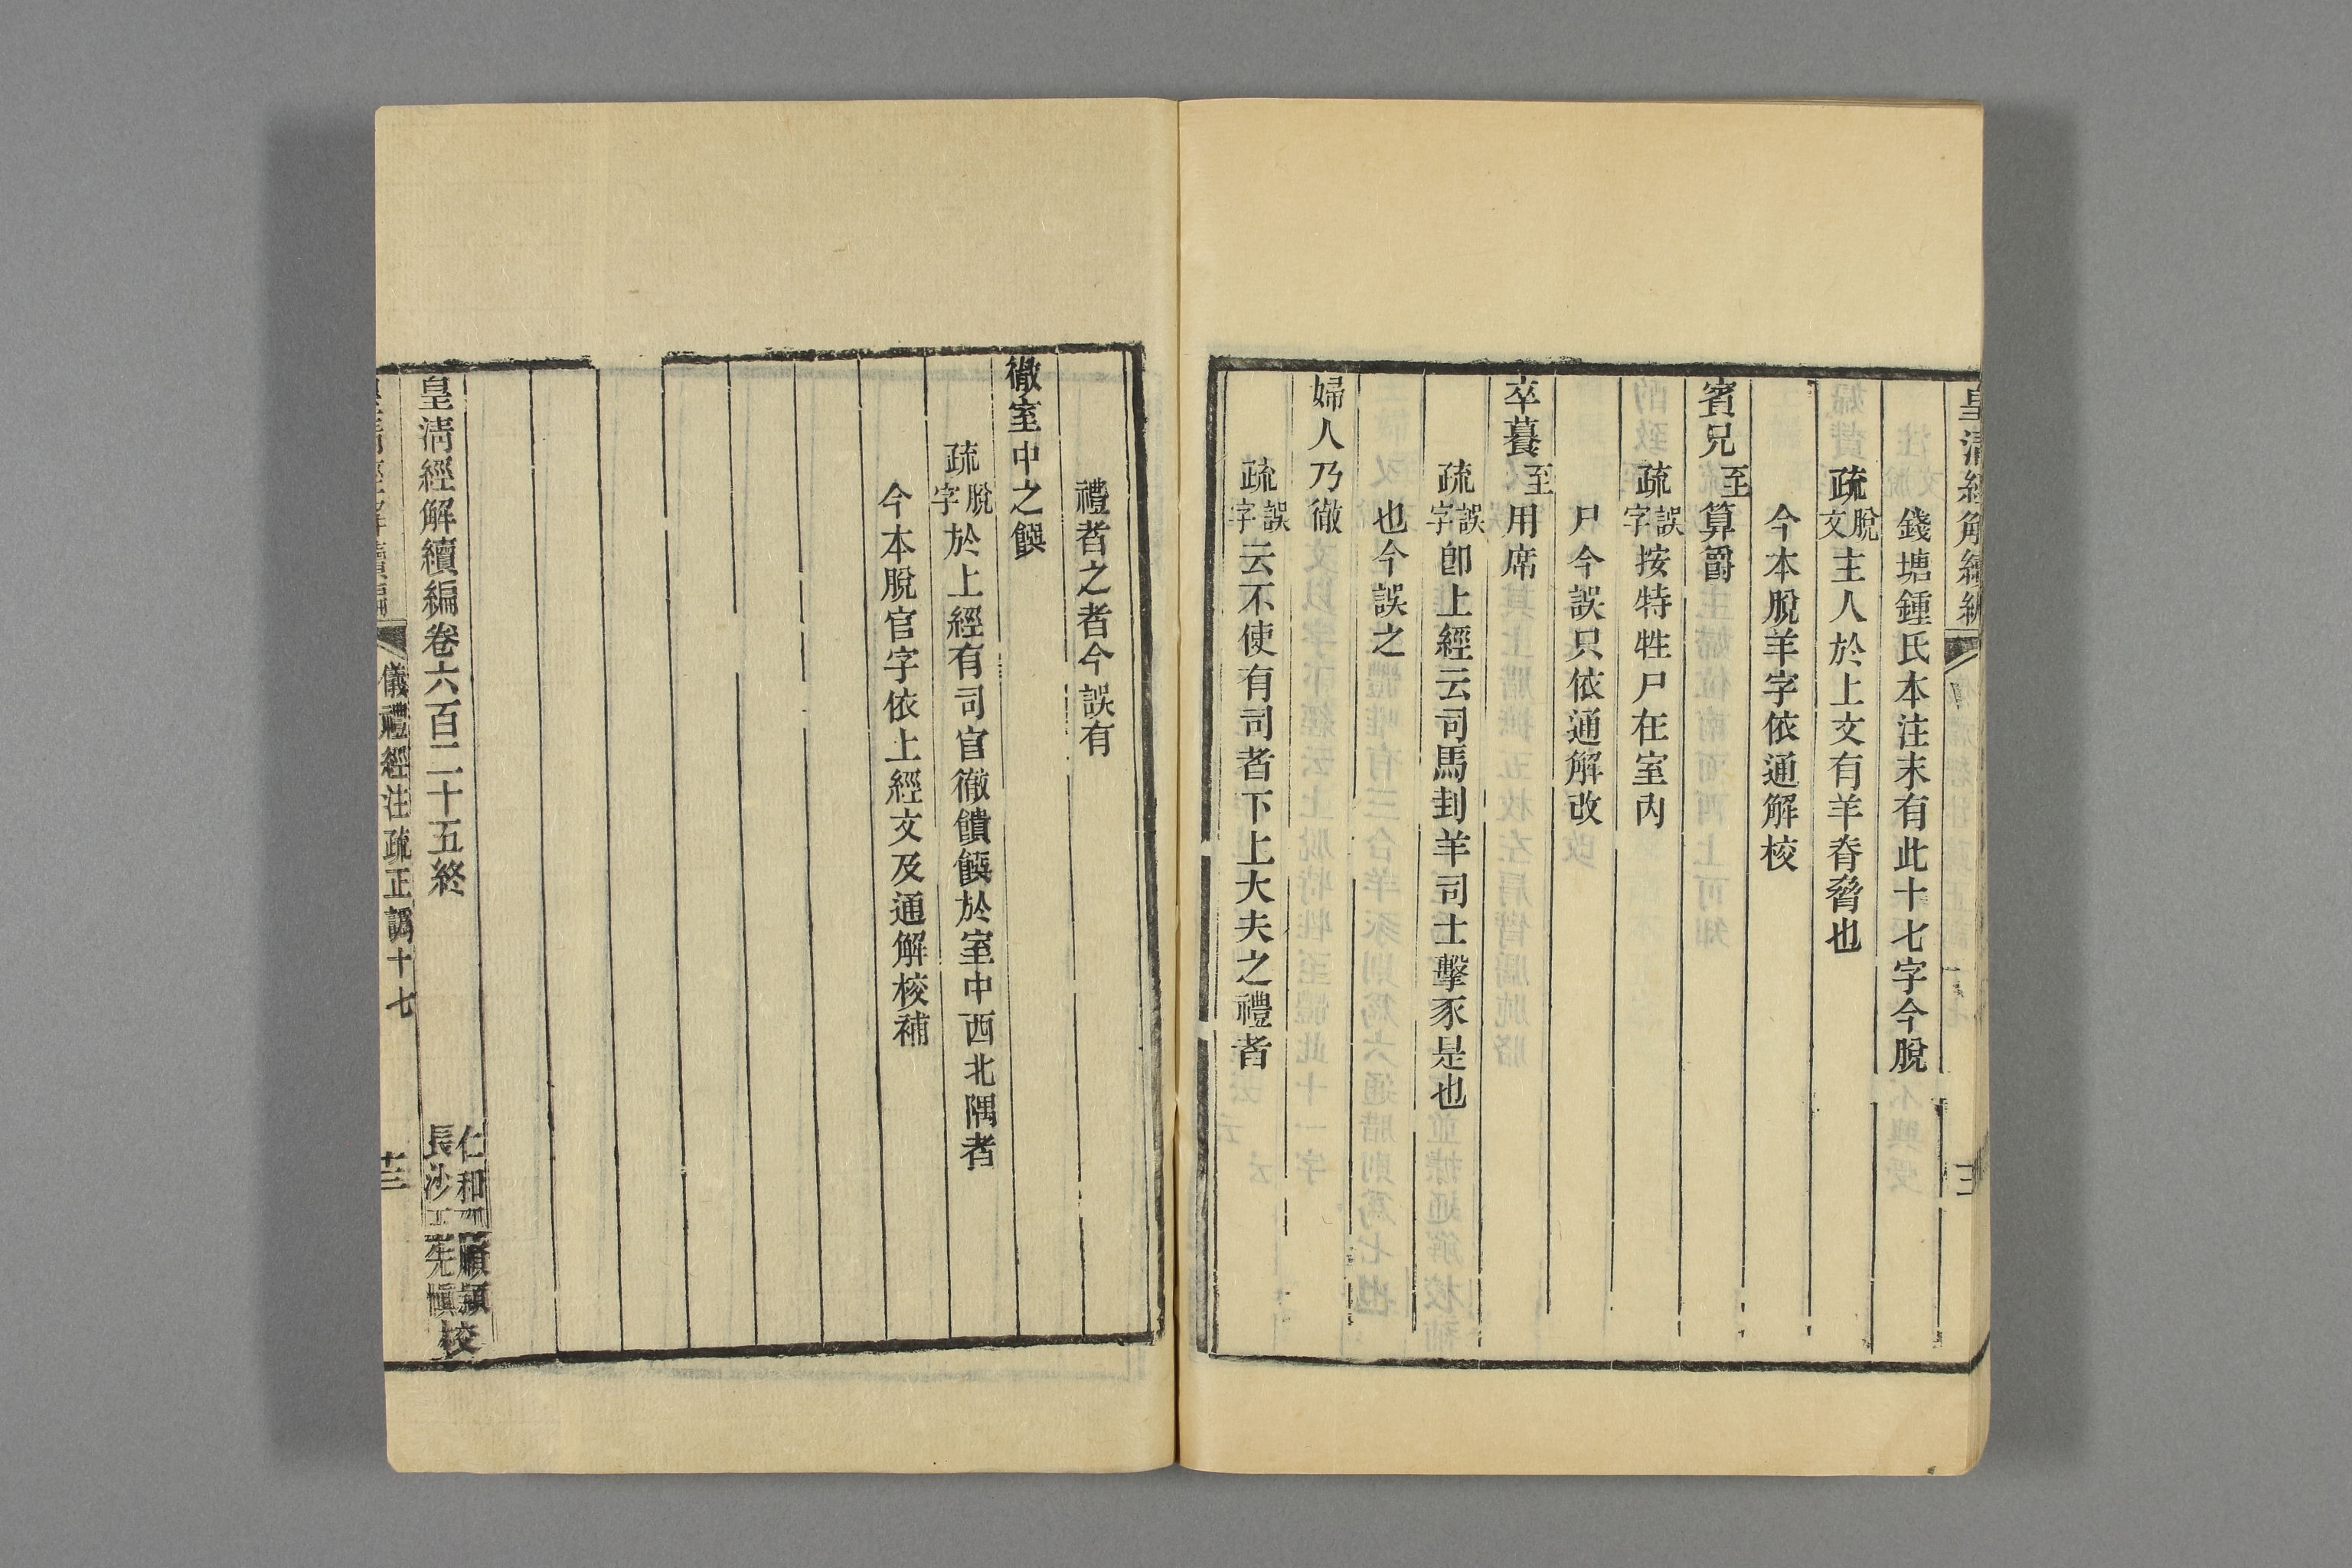 皇清經解續編
錢塘鍾氏本注末有此十七字今脫
疏脫文主人於上文有羊脊脅也
今本脫羊字依通解校
賓兄至算爵
疏誤字按特牲尸在室內
尸今誤只依通解改
卒𩜁至用席
疏誤字卽上經云司馬刲羊司士擊豕是也
也今誤之
婦人乃徹
疏誤字云不使有司者下上大夫之禮者
禮者之者今誤有
徹室中之饌
疏脫字於上經有司官徹饋饌於室中西北隅者
今本脫官字依上經文及通解校補
皇清經解續編卷六百二十五終
仁和 顧潁
長沙王先愼校
儀禮經注疏正譌十七